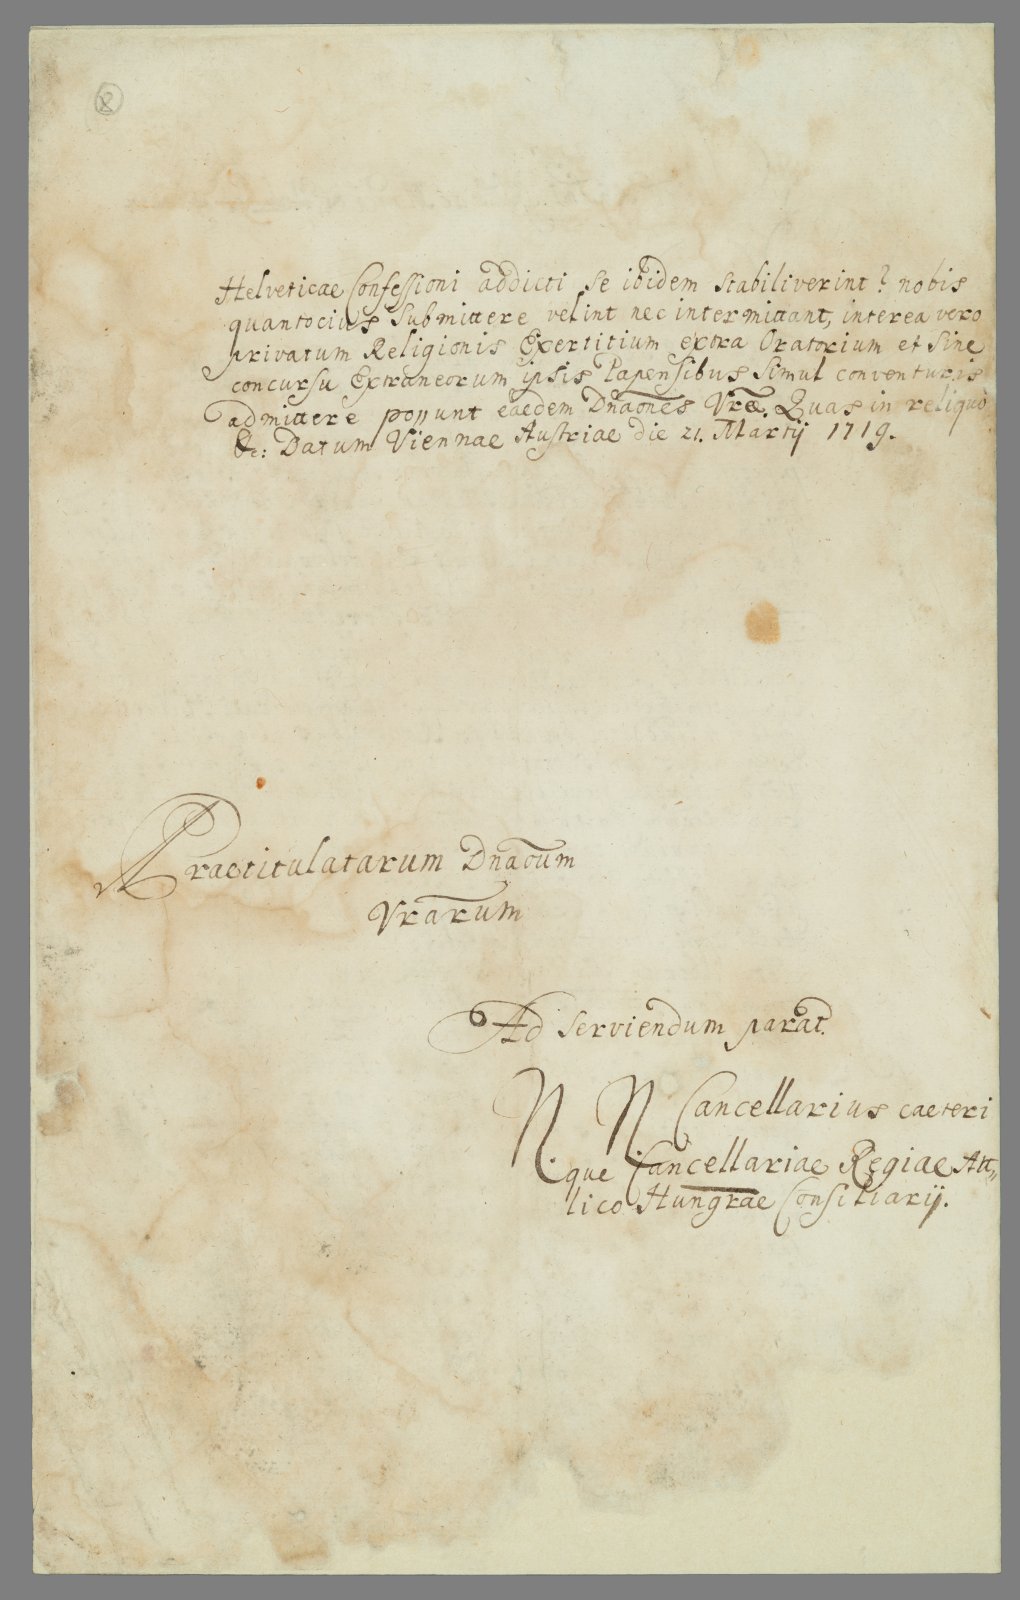 2
Helveticae Confessioni addicti se ibidem stabiliverint? nobis
quantocius submittere velint nec intermittant, interea vero
privatum Religionis Exertitium extra Oratorium et sine
concursu Extraneorum ipsis Papensibus simul conventuris
admittere possunt eaedem Dnaones Vrae. Quas in reliquo
&c: Datum Viennae Austriae die 21. Martij 1719.
Praetitulatarum Dnaoum
Vrarum
Ad serviendum parat.
N. N. Cancellarius caeteri
que Cancellariae Regiae Au„
lico Hungrae Consiliarij.